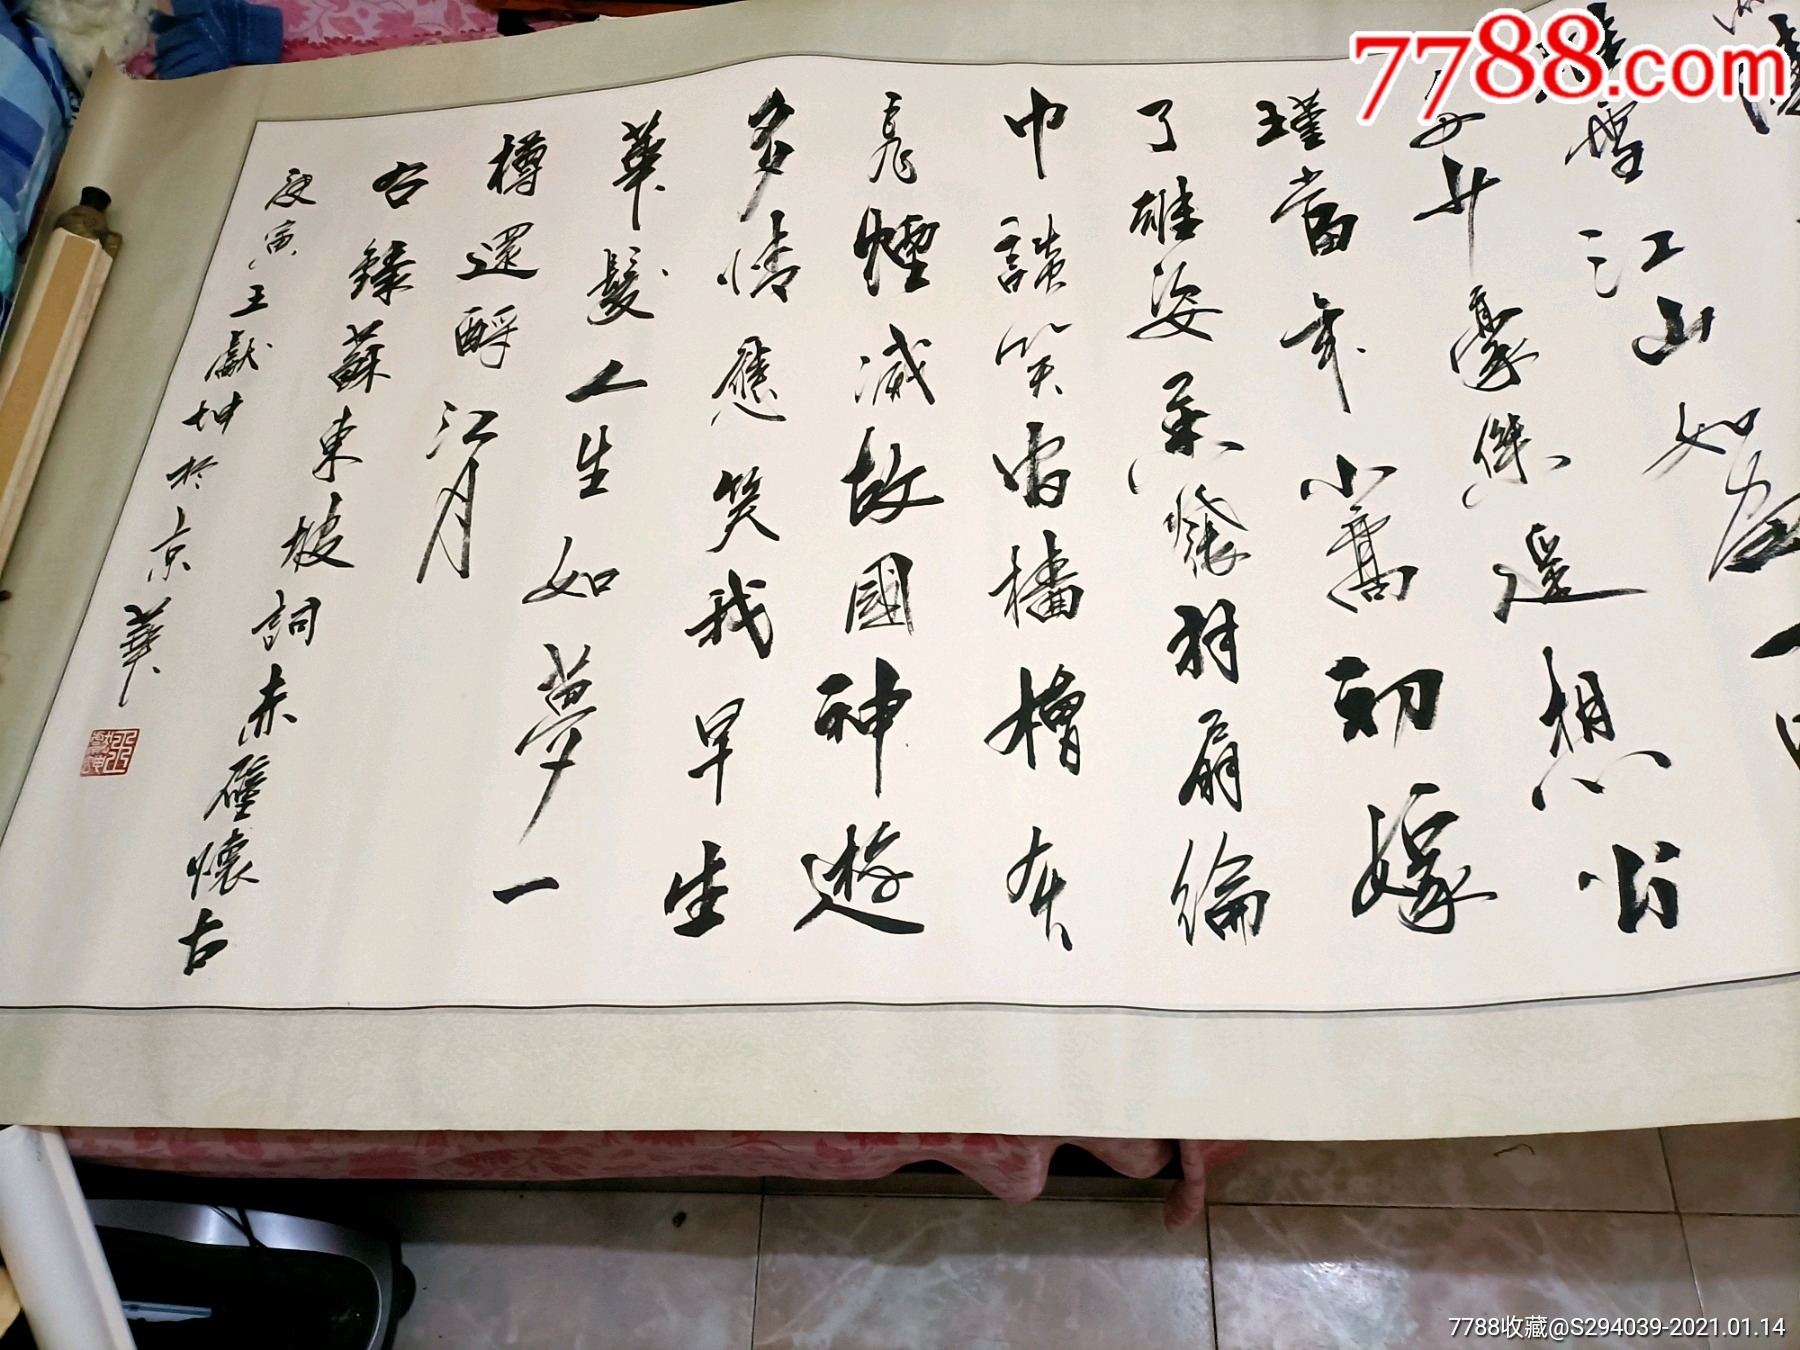 7788.com
雪江山如畫一
少豪傑遙想公
瑾當年小喬初嫁
了雄姿英發羽扇綸
巾談笑間檣櫓灰
飛煙滅故國神遊
多情應笑我早生
華髮人生如夢一
樽還酹江月
右錄蘇東坡詞赤壁懷古
庚寅王獻坤於京華
7788收藏@S294039-2021.01.14